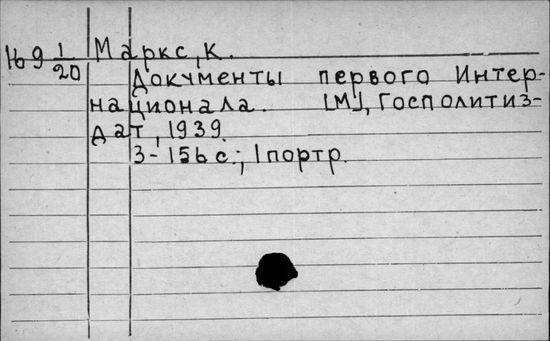 169 1/20 Маркс, К.
Документы первого Интер-
национала. [М], Госполитиз-
дат, 1939.
3-156 с.; 1 портр.